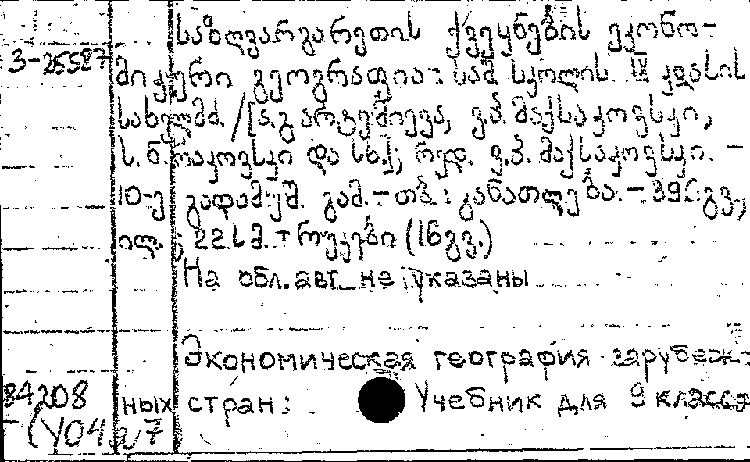 საზღვარგარეთის ქვეყნების ეკონო-
3-25527 მიკური გეოგრაფია: საშ. სკოლის IX კლასის
სახელმძ. / [ა.გ. არტემიევა, ვ.პ. მაქსაკოვსკი,
ს.ნ. რაკოვსკი და სხვ.; რედ. ვ.პ. მაქსაკოვსკი. -
10-ე გადამუშ. გამ. - თბ.: განათლება. - გვ.,
ილ.; 22 სმ. + რუკები (16 გვ.)
На обл. авт. не указаны
Экономическая география зарубеж-
84208 ных стран: Учебник для 9 класса
(У04 7